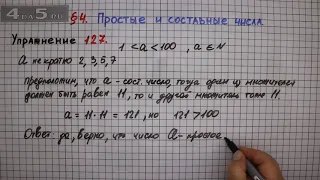 4APS.RU
§4. Простые и составные числа.
Упражнение 127.
1 < a < 100, a ∈ N
А не кратно 2, 3, 5, 7
предположим, что a - сост. число, тогда один из множителей
должен быть равен 11, то и другой множитель тоже 11.
a = 11 · 11 = 121, но 121 > 100
Ответ: да, верно, что число a - простое